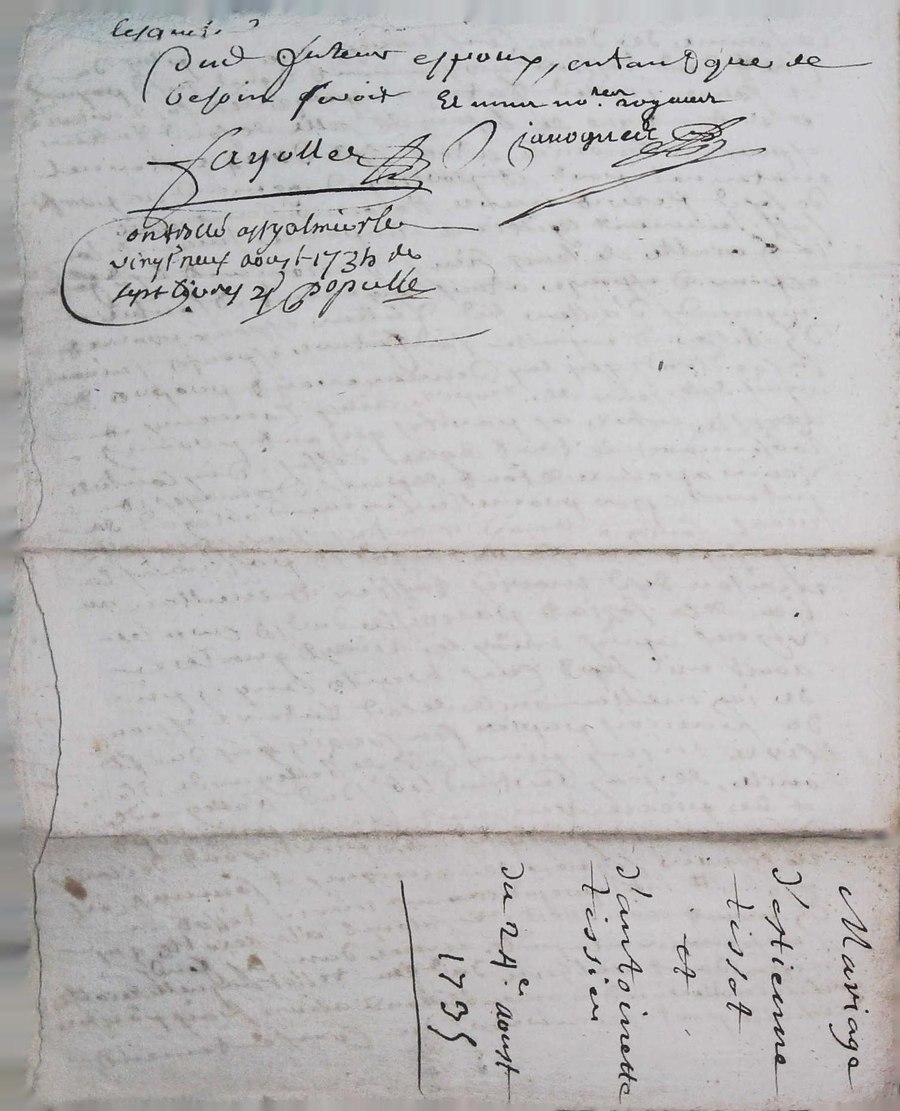 Dud futeur espoux, entant que de
besoin seroit Et nous no.res royaux
Fayolles Janoguet
Controllé
vingt neuf aoust 1735 Rs
sept livres 2s Populle
Mariage
d'estienne
tissot
et
d'antoinette
tissier
du 24e. aoust
1735